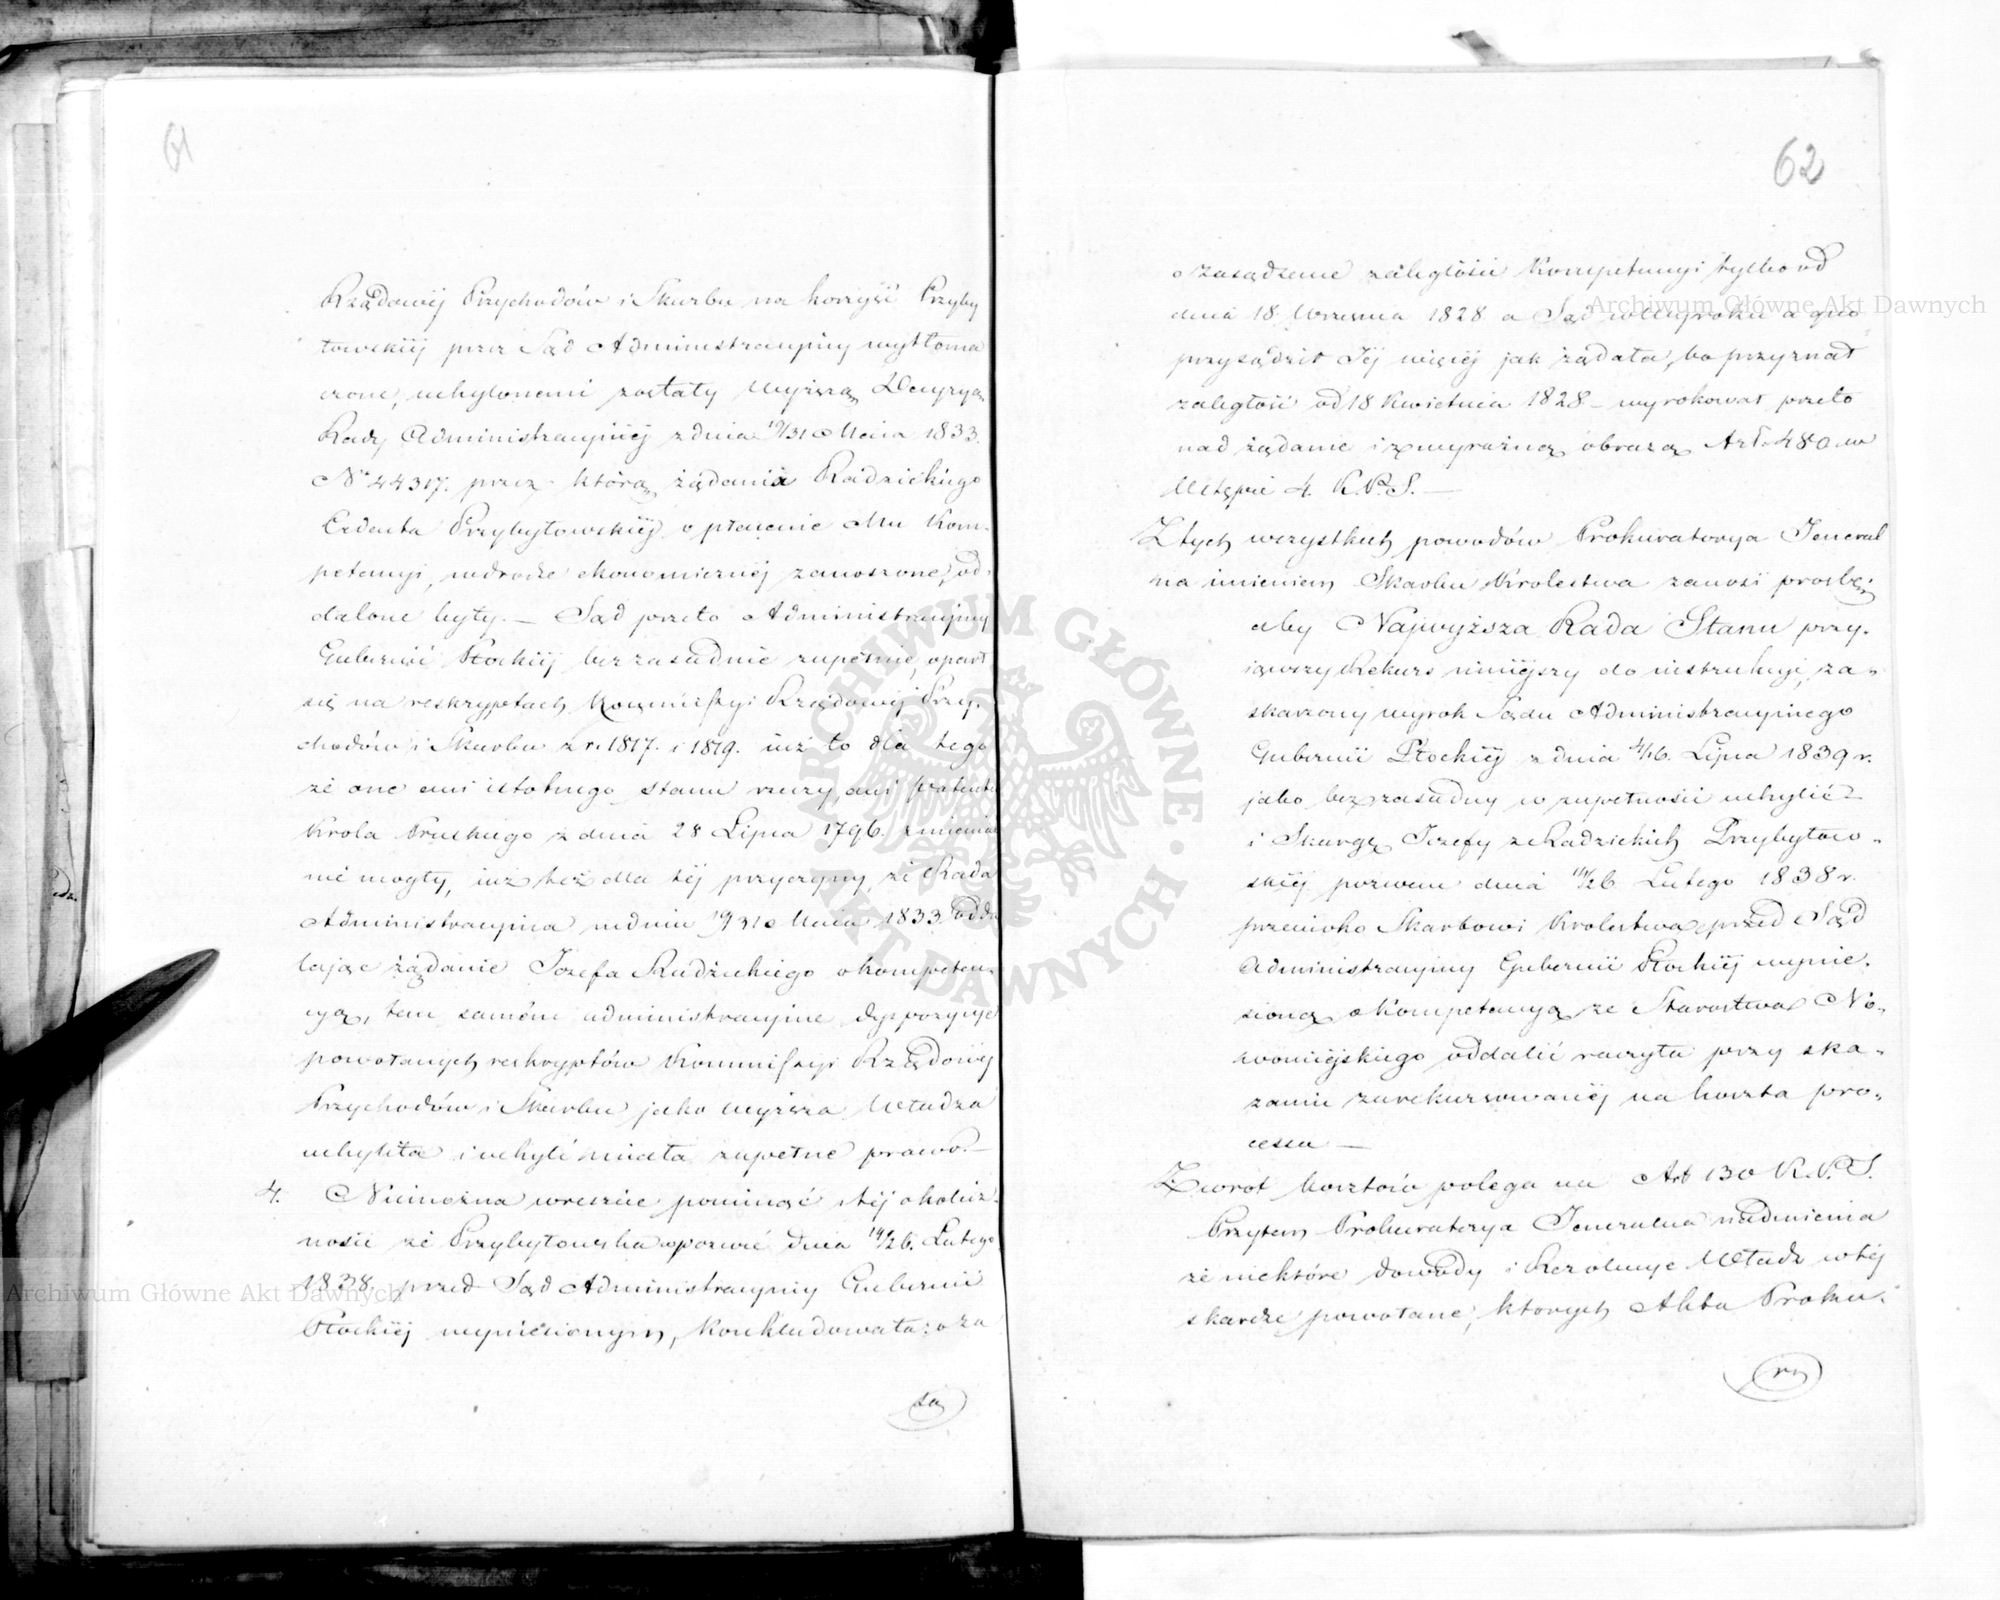 61
Rządowéj Przychodów i Skarbu na korzyść Przyby
towskiéj przez Sąd Administracyiny wytłoma
czone, uchylonemi zostały Wyższą Decyzyą
Rady Administracyinéj z dnia 19/31 Maia 1833.
No 44317. przez którą żądania Radzickiego
Cedenta Przybytowskiéj o płacenie Mu Kom-
petencyi, w drodze ekonomicznéj zanoszone, od-
dalone były. — Sąd przeto Administracyiny
Gubernii Płockiéj bezzasadnie zupełnie, oparł
się na reskryptach Kommissyi Rządowéj Przy-
chodów i Skarbu z r. 1817. i 1819. już to dla tego
że one ani istotnego stanu rzeczy, ani patentu
Króla Pruskiego z dnia 28 Lipca 1796. zmieniać
nie mogły, już też dla téj przyczyny, że Rada
Administracyina w dniu 19/31 Maia 1833 odda
lając żądanie Józefa Radzickiego o kompeten-
cyą, tem samém administracyine dyspozycye
powołanych reskryptów Kommissyi Rządowéj
Przychodów i Skarbu jako wyższa Władza
uchyliła i uchylić miała zupełne prawo. —
4. Niemożna wreszcie pominąć téj okolicz-
ności że Przybytowska w pozwie dnia 14/26. Lutego
1838. przed Sąd Administracyiny Gubernii
Płockiéj wyniesionym, konkludowała: o za
są
62
o zasądzenie zaległości Kompetencyi tylko od
dnia 18 Września 1828 a Sąd w Wyroku a quo
przysądził Jéj więcéj jak żądała, bo przyznał
zaległość od 18 Kwietnia 1828 — wyrokował przeto
nad żądanie i z wyraźną obrazą Art. 480 w
Ustępie 4. K.P.S. —
Z tych wszystkich powodów Prokuratorya Jeneral
na imieniem Skarbu Królestwa zanosi prośbę:
aby Najwyższa Rada Stanu przy-
iąwszy Rekurs niniéjszy do instrukcyi, za-
skarżony wyrok Sądu Administracyinego
Gubernii Płockiéj z dnia 4/16. Lipca 1839 r.
jako bezzasadny w zupełności uchylić
i Skargę Józefy z Radzickich Przybytow-
skiéj pozwem dnia 14/26 Lutego 1838 r.
przeciwko Skarbowi Królestwa przed Sąd
Administracyiny Gubernii Płockiéj wynie-
sioną o Kompetencyą ze Starostwa No-
womiéjskiego oddalić raczyła przy ska-
zaniu zarekursowanéj na koszta pro-
cessu —
Zwrot kosztów polega na Art 130 K.P.S.
Przytem Prokuratorya Jeneralna nadmienia
że niektóre dowody i Rezolucye Władz w téj
skardze powołane, których Akta Proku-
ra
Archiwum Główne Akt Dawnych
Archiwum Główne Akt Dawnych
ARCHIWUM GŁÓWNE · AKT DAWNYCH ·